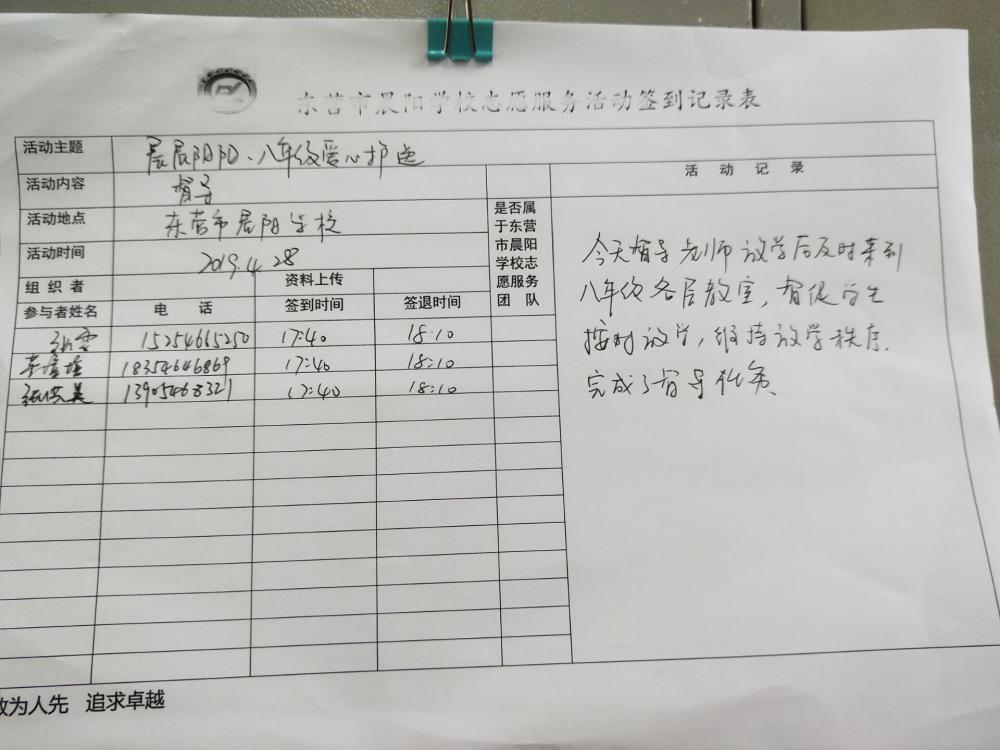 东营市晨阳学校志愿服务活动签到记录表
活动主题 晨晨阳阳、八年级爱心护送
活动内容 督导
活动地点 东营市晨阳学校
活动时间 2019.4.28
组织者 资料上传
参与者姓名 电话 签到时间 签退时间
15254665250 17:40 18:10
18354646869 17:40 18:10
13905468321 17:40 18:10
是否属
于东营
市晨阳
学校志
愿服务
团队
活动记录
今天督导老师放学后及时来到
八年级各居教室，督促学生
按时放学，维持放学秩序.
完成了督导任务
为人先 追求卓越